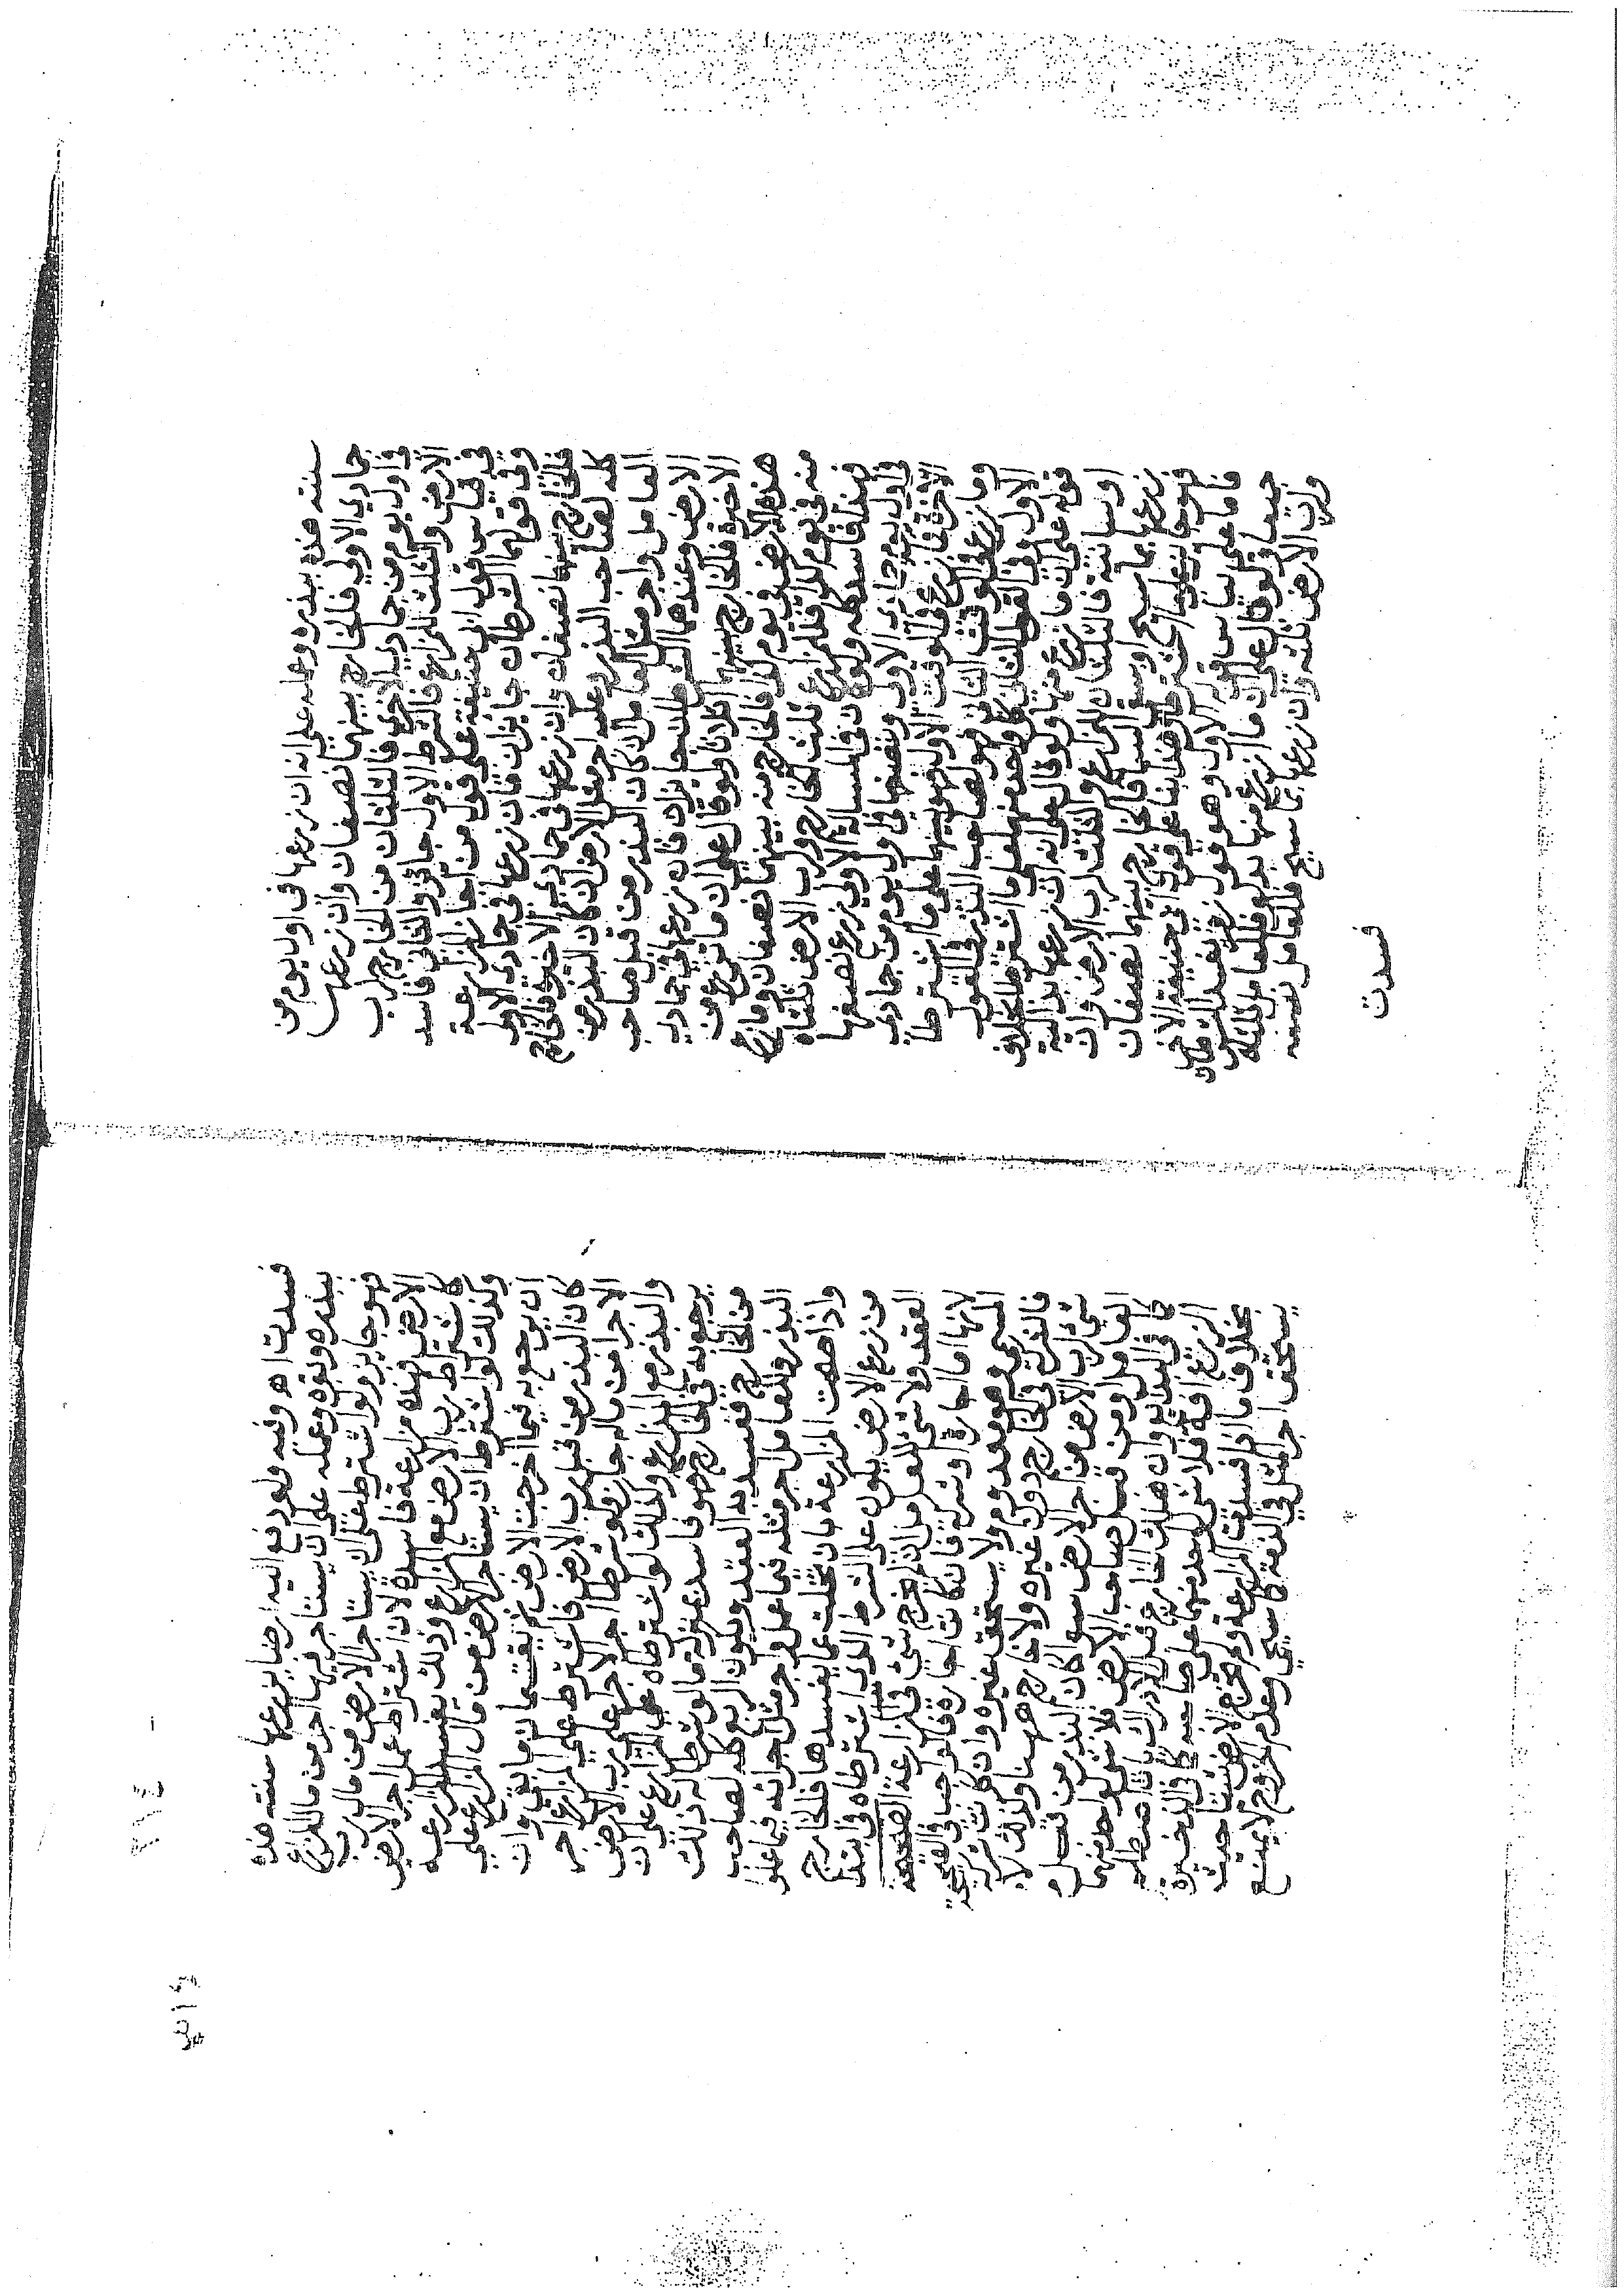 سنته هذه ببذره وعمله على انه ان زرعها في اول يوم من
جمادي الاولي فالخارج بينهما نصفان وان زرعها
في اول يوم من جمادي الاخري فالثلثان من الخارج لرب
الارض والثلث للمزارع فالشرط الاول جائز والثاني فاسد
في قياس قول ابي حنيفة على قول من اجاز المزارعة
وفي قولهما الشرطان جايزان فان زرعها في جمادي الاولى
فالخارج بينهما نصفان وان زرعها في جمادي الاخيرة فالخارج
كله لصاحب البذر وعليه اجر مثل الارض ان كان البذر من
العامل واجر مثل العامل ان كان البذر من قبل صاحب
الارض وعندهما الشرطان جايزان فان زرعها في جمادي
الاخيرة فالخارج بينهما اثلاثا ولو قال على ان ما تزرع من
هذه الارض في يوم كذا فالخارج منه بينهما نصفان وما زرع
منه في يوم كذا فللمزارع ثلث الخارج ولرب الارض ثلثاه
فهذا فاسد كله ولو كان في المسالة الاولي زرع نصفها
في اول يوم من جمادي الاولى ونصفها في اول يوم من جمادي
الاخرة فما زرع في الوقت الاول فهو بينهما على ما اشترطا
وما زرع في الوقت الثاني فهو لصاحب البذر في القول
الاول وفي القول الثاني كل واحد منهما على ما اشترطا بخلاف
قوله على ان ما زرع منها ولو قال على انه ان زرعها بدالية
او سانية فالثلثان للمزارع والثلث لرب الارض وان
زرعها بماء سيح او سقت السماء فالخارج بينهما نصفان
فهو جائز على ما اشترطا وهذا بناء على قول ابي حنيفة الاخر
فاما على قياس قوله الاول وهو قول زفر تفسد الشرطان
جميعا ولو قال على ان ما زرع منها بدلو فللعامل ثلثاه
ولرب الارض ثلثه وان زرعها بماء سيح فللعامل نصفه
فسدت
فسدت اهـ وفيه ولو دفع اليه ارضا يزرعها سنته هذه
ببذره وبقره وعمله على ان يستاجر فيها اجر من مال المزارع
فهو جايز ولو اشترط على ان يستاجر الاجر من مال رب
الارض فهذه مزارعة فاسدة لان اشتراط عمل اجير الارض
كاشتراط رب الارض مع المزارع وذلك يفسد المزارعة
وكذلك لو اشترط ان يستاجر الاجر من مال المزارع على
ان يرجع به فيما اخرجت الارض ثم يقتسمان ما بقي وان
كان البذر من قبل رب الارض فاشترط على المزارع اجر
الاجرا من ماله جاز ولو شرطا اجر الاجرا على رب الارض
والبذر مع المزارع وكذلك لو اشترطاه على المزارع على ان
يرجع به في الخارج فهو فاسد بمنزلة ما لو شرطا له ذلك
من الخارج فيفسد به العقد ويكون الريع كله لصاحب
البذر وللعامل اجر مثله فيما عمل واجر مثل اجرائه فيما عملوا
واذا صحت المزارعة بان خلت عما يفسدها فالخارج
من زرع الارض يكون على الشرط الذي اشترطاه في ابتدا
العقد ولا شئ للعامل ان لم يخرج شئ في المزارعة الصحيحة
لانها اما اجارة او شركة فان كانت اجارة فالواجب في الصحيحة
المسمي وهو معدوم ولا يستحق غيره وان كانت شركة
فالشركة في الخارج دون غيره ولا خارج ههنا وكذلك لا
شئ لرب الارض من اجر الارض سوا كان البذر من قبل
العامل او من قبل صاحب الارض فلا شئ لواحد منهما
كما في البدايع وان هلك الخارج قبل الادراك بان اصطلم
الزرع افة فلا شئ لواحد منهما على صاحبه كما في الذخيرة
بخلاف ما اذا فسدت المزارعة ولم تخرج الارض شيئا حيث
يستحق اجر المثل في الذمة كما سيجي وعدم الخروج لا يمنع